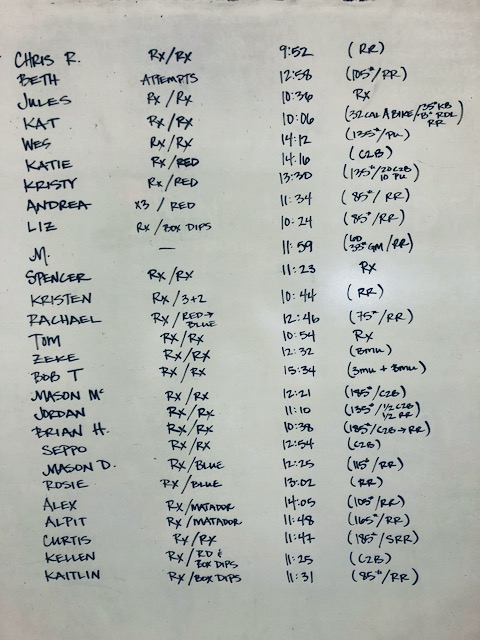 CHRIS R. Rx/Rx 9:52 (RR)
BETH ATTEMPTS 12:58 (105#/RR)
JULES Rx/Rx 10:36 Rx
KAT Rx/Rx 10:06 (32 CAL A BIKE/35# KB
RDL
RR)
WES Rx/Rx 14:12 (135#/PU)
KATIE Rx/RED 14:16 (C2B)
KRISTY Rx/RED 13:30 (135#/20 C2B
10 PU)
ANDREA x3 / RED 11:34 (85#/RR)
LIZ Rx/BOX DIPS 10:24 (85#/RR)
M. — 11:59 (60
35# GM/RR)
SPENCER Rx/Rx 11:23 Rx
KRISTEN Rx/3+2 10:44 (RR)
RACHAEL Rx/RED→
BLUE 12:46 (75#/RR)
TOM Rx/Rx 10:54 Rx
ZEKE Rx/Rx 12:32 (8mu)
BOB T Rx/Rx 15:34 (3mu + 3mu)
MASON Mc Rx/Rx 12:21 (185#/C2B)
JORDAN Rx/Rx 11:10 (135#/1/2 C2B
1/2 RR)
BRIAN H. Rx/Rx 10:38 (185#/C2B→RR)
SEPPO Rx/Rx 12:54 (C2B)
MASON D. Rx/BLUE 12:25 (115#/RR)
ROSIE Rx/BLUE 13:02 (RR)
ALEX Rx/MATADOR 14:05 (105#/RR)
ALPIT Rx/MATADOR 11:48 (165#/RR)
CURTIS Rx/Rx 11:47 (185#/SRR)
KELLEN Rx/RD &
BOX DIPS 11:25 (C2B)
KAITLIN Rx/BOX DIPS 11:31 (85#/RR)